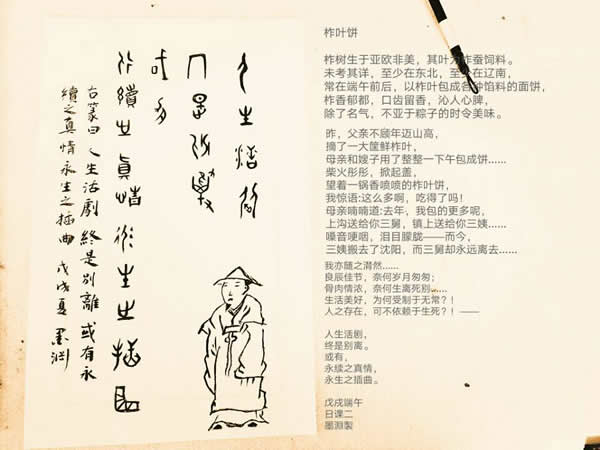 人生活劇
終是別離
或有
永續之真情永生之插曲
右篆曰人生活劇 終是別離 或有永
續之真情永生之插曲 戊戌夏 墨渊
柞叶饼
柞树生于亚欧非美,其叶为柞蚕饲料。
未考其详,至少在东北,至少在辽南,
常在端午前后,以柞叶包成各种馅料的面饼,
柞香郁都,口齿留香,沁人心脾,
除了名气,不亚于粽子的时令美味。
昨,父亲不顾年迈山高,
摘了一大筐鲜柞叶,
母亲和嫂子用了整整一下午包成饼......
柴火彤彤,掀起盖,
望着一锅香喷喷的柞叶饼,
我惊语:这么多啊,吃得了吗!
母亲喃喃道:去年,我包的更多呢,
上沟送给你三舅,镇上送给你三姨......
嗓音哽咽,泪目朦胧——而今,
三姨搬去了沈阳,而三舅却永远离去......
我亦随之潸然......
良辰佳节,奈何岁月匆匆;
骨肉情浓,奈何生离死别......
生活美好,为何受制于无常?!
人之存在,可不依赖于生死?! ——
人生活剧,
终是别离。
或有,
永续之真情,
永生之插曲。
戊戌端午
日课二
墨淵製